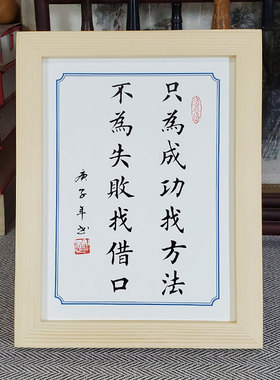 只為成功找方法
不為失敗找借口
庚子年書